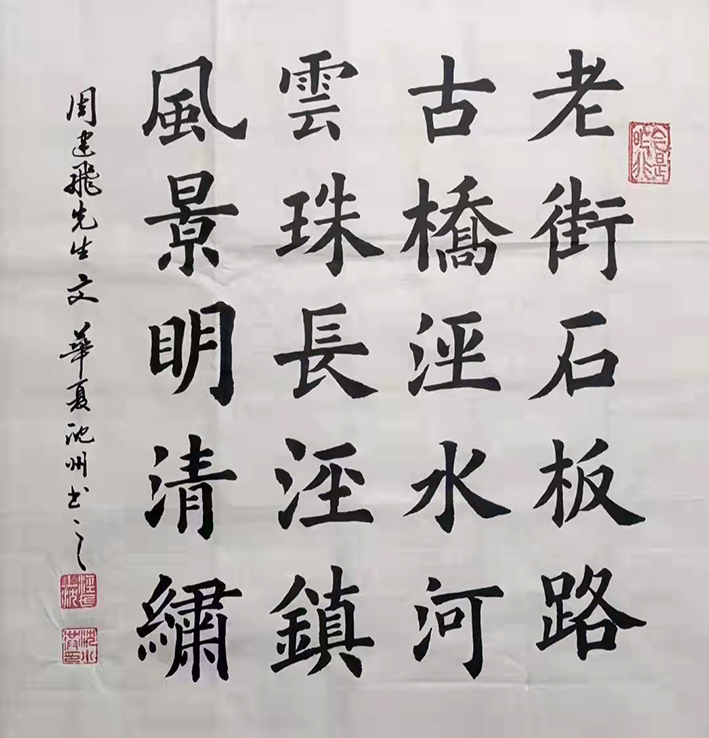 老街石板路
古橋涇水河
雲珠長涇鎮
風景明清繡
周建飛先生文 華夏沈州书之